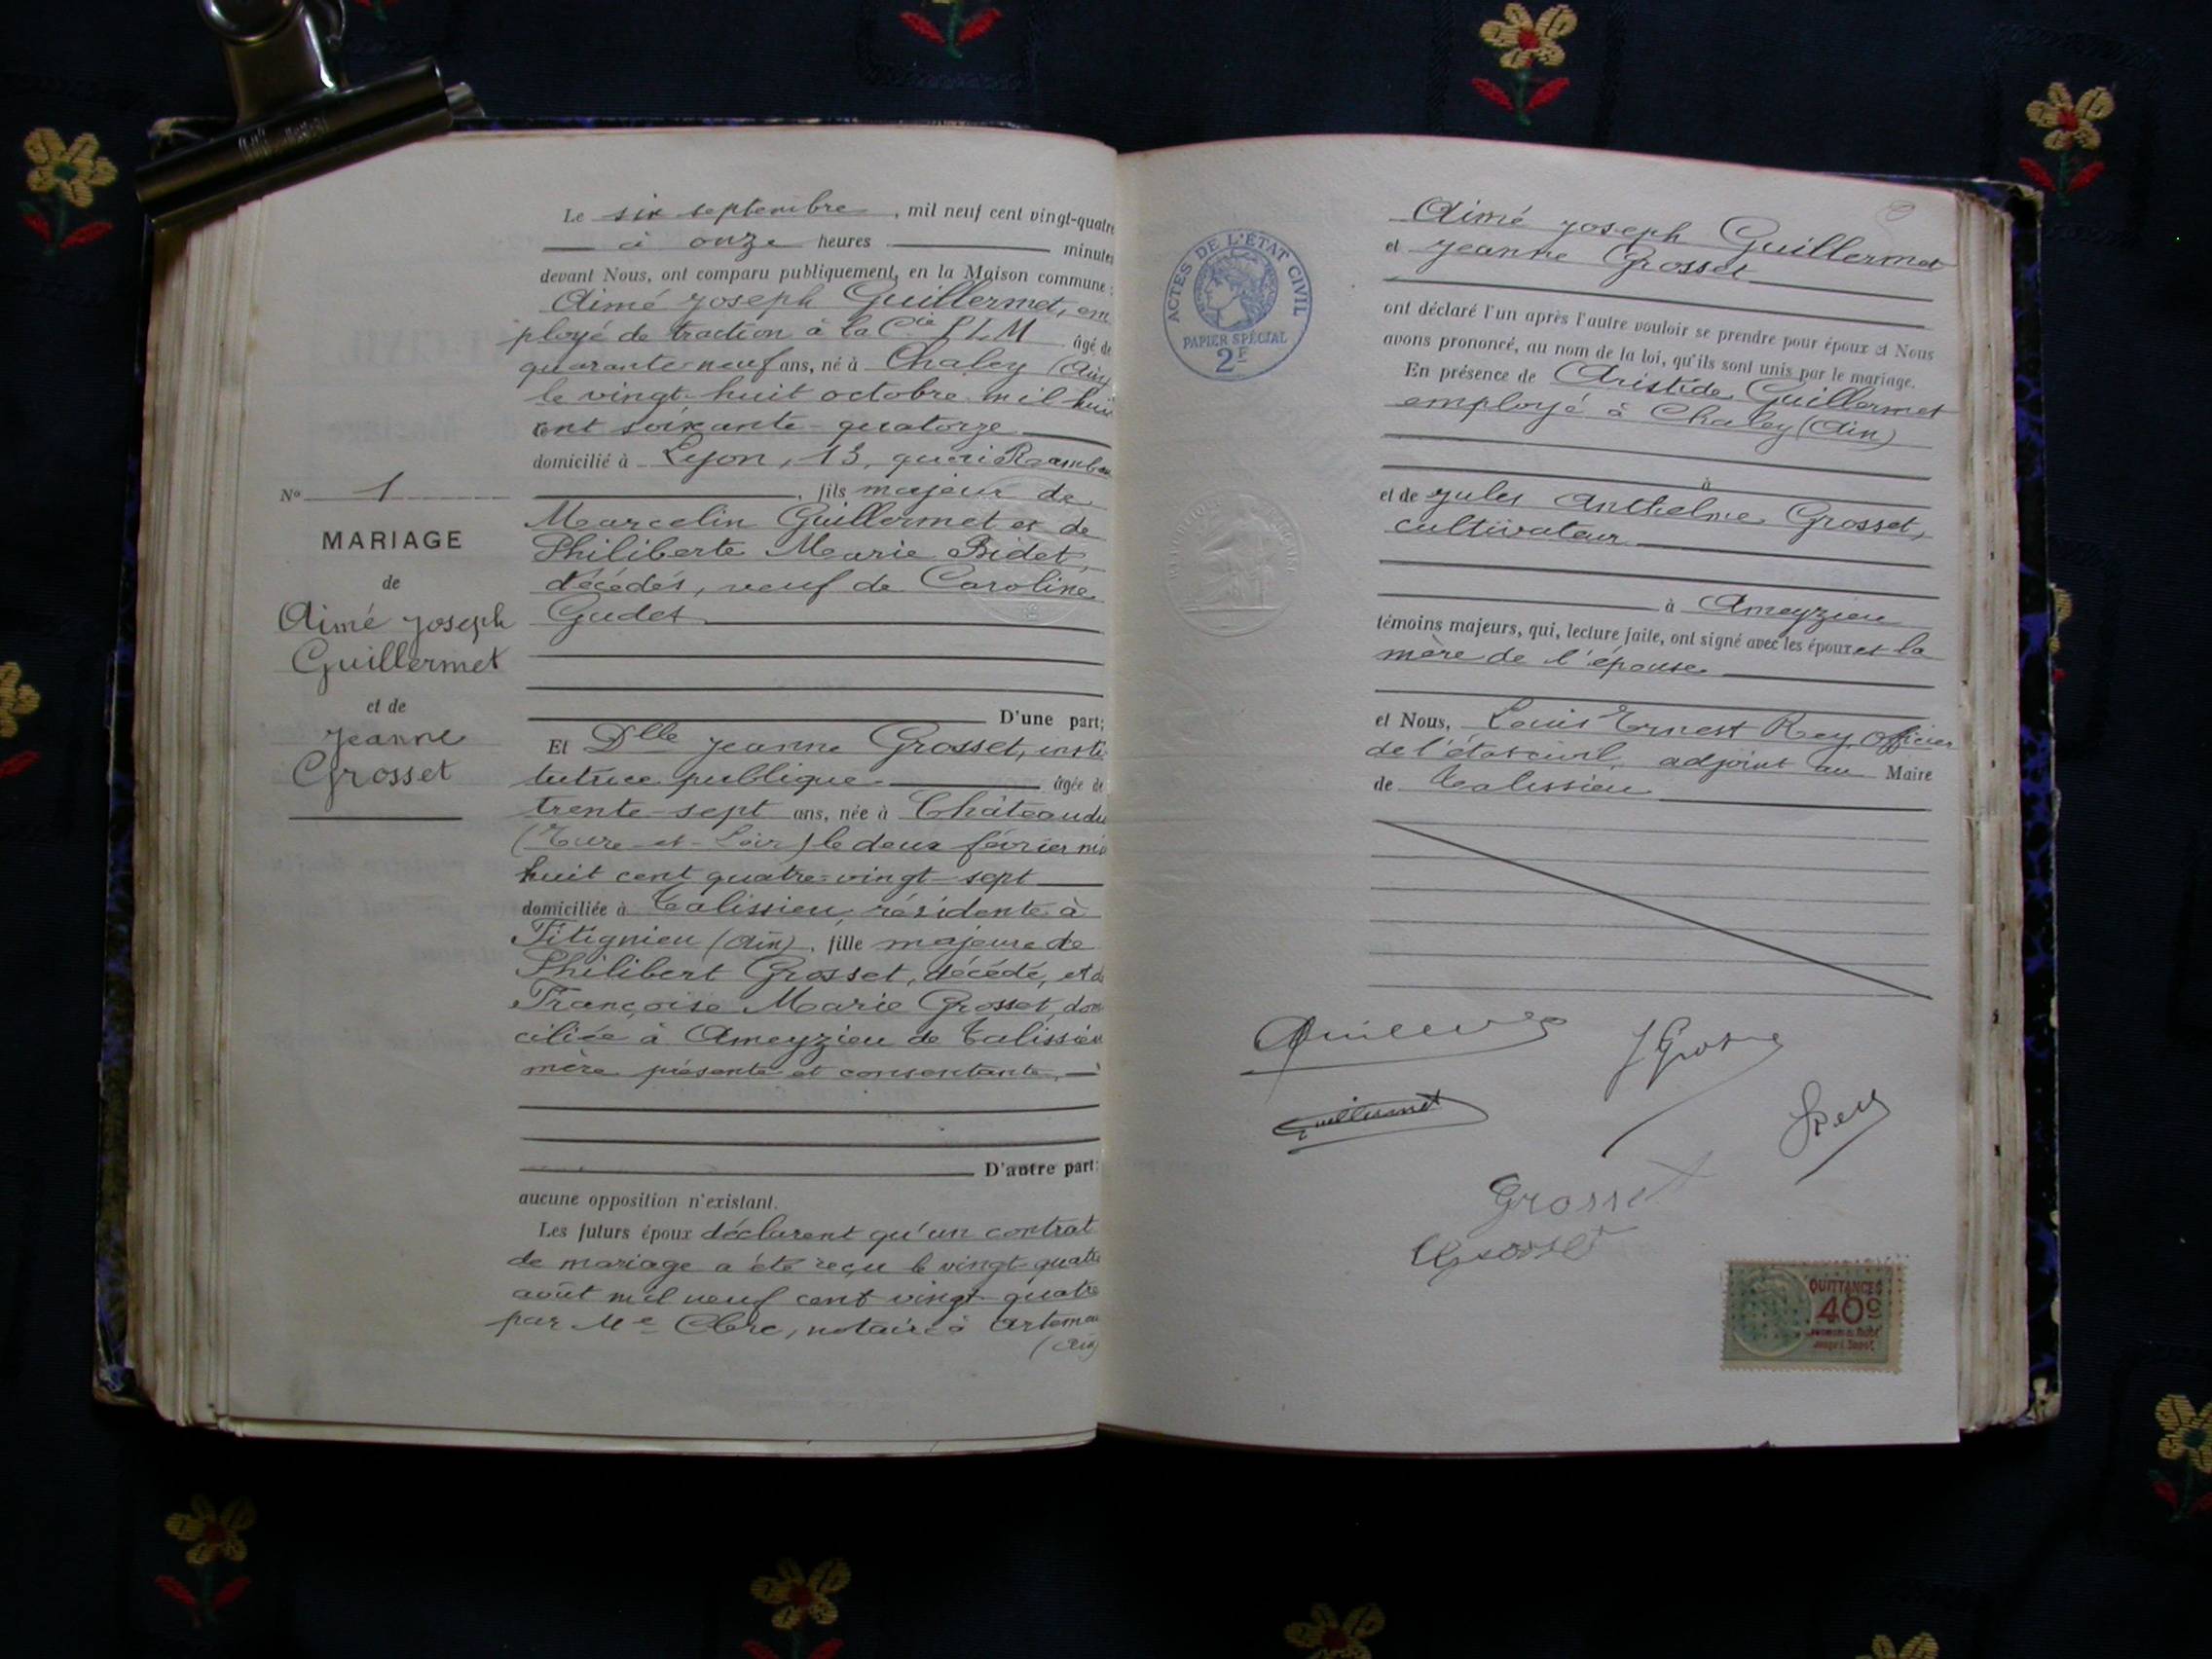 Le six septembre, mil neuf cent vingt-quatre
à onze heures minutes
devant Nous, ont comparu publiquement, en la Maison commune :
Aimé Joseph Guillermet, em
ployé de traction à la Cie PLM âgé de
quarante-neuf ans, né à Chaley (Ain)
le vingt-huit octobre mil huit
cent soixante-quatorze
domicilié à Lyon, 13, quai Rambau
, fils majeur de
Marcelin Guillermet et de
Philiberte Marie Bidet,
décédés, veuf de Caroline
Gudet
D'une part;
Et Dlle Jeanne Grosset, insti
tutrice publique âgée de
trente-sept ans, née à Châteaudu
(Eure-et-Loir) le deux février mil
huit cent quatre-vingt-sept
domiciliée à Talissieu, résidente à
Fitignieu (Ain), fille majeure de
Philibert Grosset, décédé, et de
Françoise Marie Grosset, domi
ciliée à Ameyzieu de Talissieu
mère présente et consentante,
D'autre part:
aucune opposition n'existant.
Les futurs époux déclarent qu'un contrat
de mariage a été reçu le vingt-quatre
août mil neuf cent vingt-quatre
par Me Clerc, notaire à Artemare
(Ain)
No 1
MARIAGE
de
Aimé Joseph
Guillermet
et de
Jeanne
Grosset
ACTES DE L'ÉTAT CIVIL
PAPIER SPÉCIAL
2F
Aimé Joseph Guillermet
et Jeanne Grosset
ont déclaré l'un après l'autre vouloir se prendre pour époux et Nous
avons prononcé, au nom de la loi, qu'ils sont unis par le mariage.
En présence de Aristide Guillermet
employé à Chaley (Ain)
à
et de Jules Anthelme Grosset,
cultivateur
à Ameyzieu
témoins majeurs, qui, lecture faite, ont signé avec les époux et la
mère de l'épouse
et Nous, Louis Ernest Rey, Officier
de l'état civil, adjoint au Maire
de Talissieu
J Grosset
Guillermet
Rey
Grosset
Grosset
QUITTANCES
40c